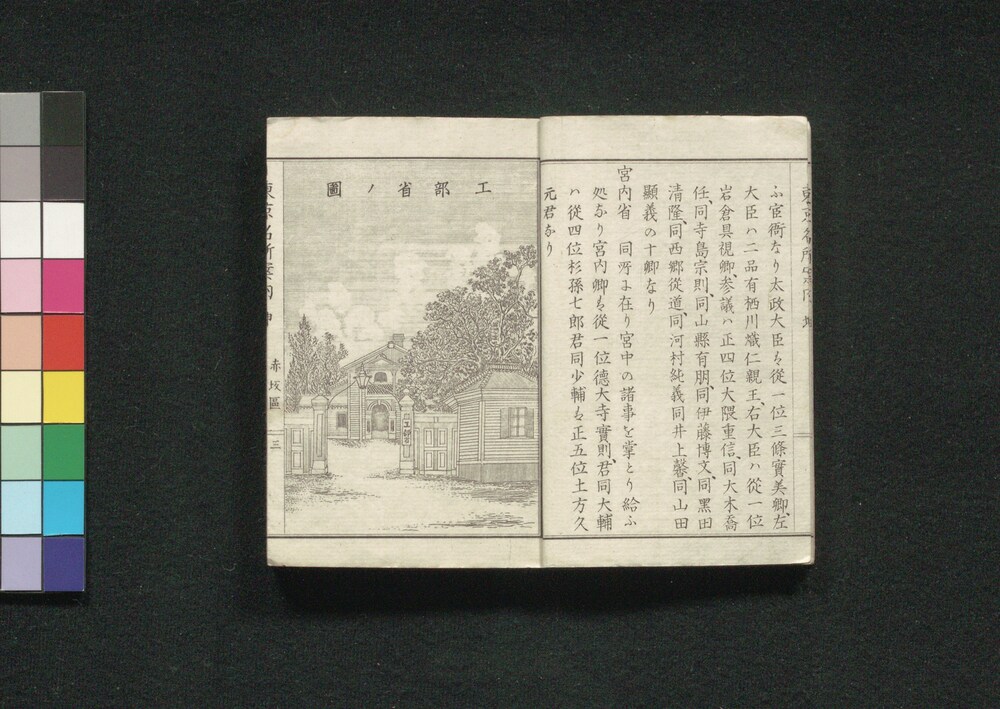 ふ宦衙なり太政大臣は從一位三條實美卿、左
大臣ハ二品有栖川熾仁親王、右大臣ハ從一位
岩倉具視卿、参議ハ正四位大隈重信、同大木喬
任、同寺島宗則、同山縣有朋、同伊藤博文、同黒田
清隆、同西郷從道同河村純義同井上馨、同山田
顯義の十卿なり
宮内省 同所に在り宮中の諸事を掌とり給ふ
処なり宮内卿は從一位德大寺實則、君同大輔
ハ從四位杉孫七郎君同少輔は正五位土方久
元君なり
工部省ノ圖
工部省
東京名所案内
赤坂區
三